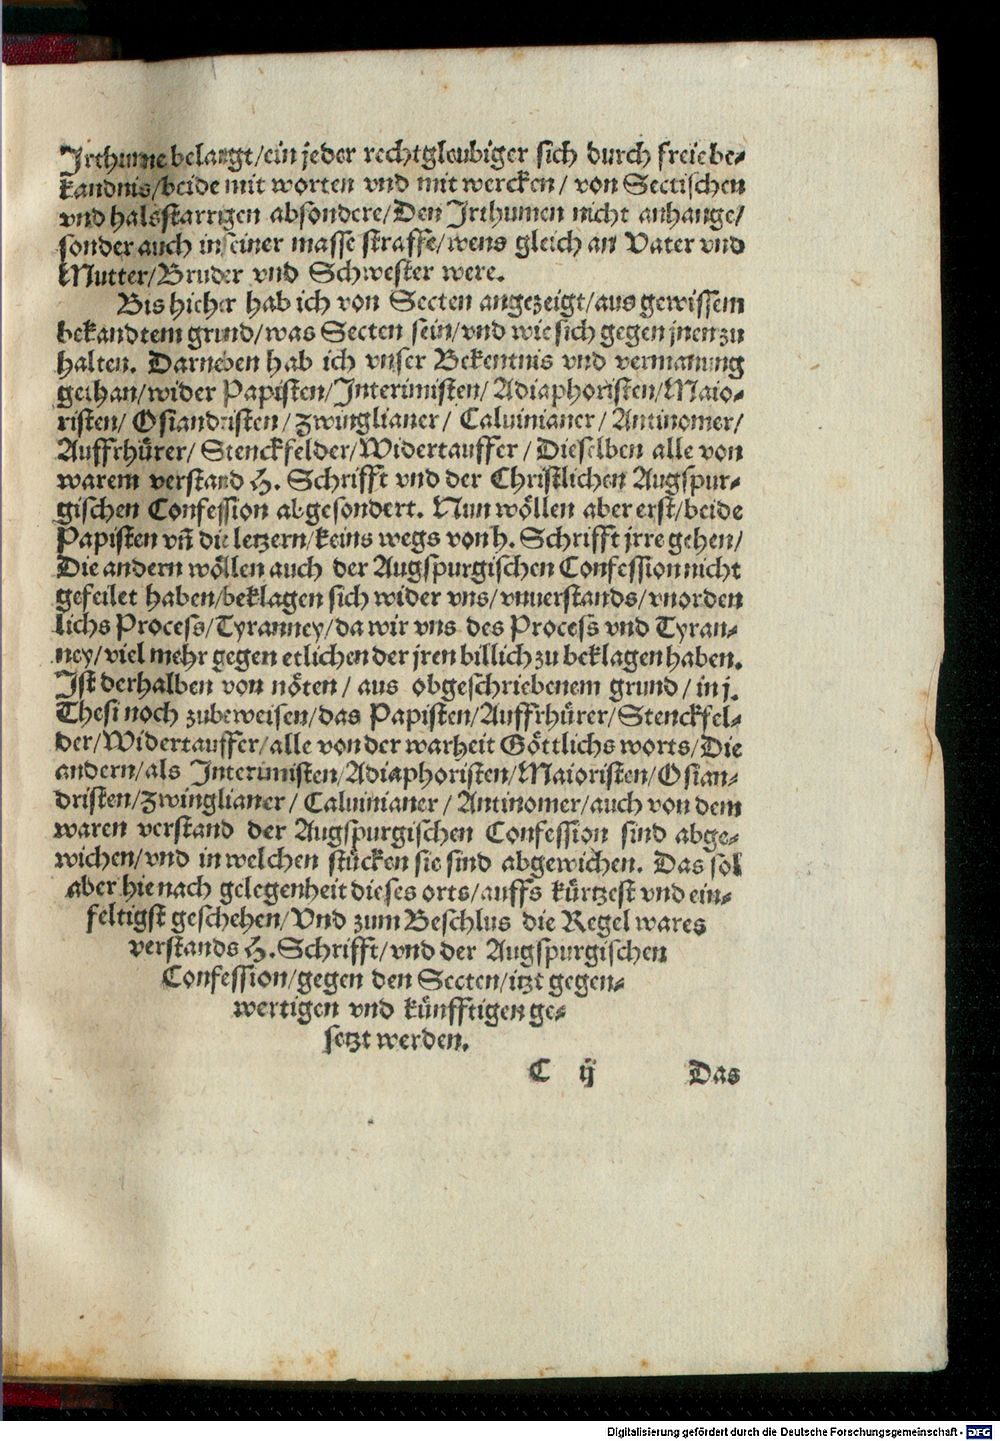 Jrthume belangt/ein jeder rechtgleubiger sich durch freie be-
kandnis/beide mit worten vnd mit wercken/ von Sectischen
vnd halsstarrigen absondere/Den Jrthumen nicht anhange/
sonder auch in seiner masse straffe/wens gleich an Vater vnd
Mutter/Bruder vnd Schwester were.
Bis hieher hab ich von Secten angezeigt/aus gewissem
bekandtem grund/was Secten sein/vnd wie sich gegen jnen zu
halten. Darneben hab ich vnser Bekentnis vnd vermanung
gethan/wider Papisten/Interimisten/Adiaphoristen/Maio-
risten/ Osiandristen/Zwinglianer/ Caluinianer/ Antinomer/
Auffrhürer/ Stenckfelder/Widertauffer/Dieselben alle von
warem verstand H. Schrifft vnd der Christlichen Augspur-
gischen Confession abgesondert. Nun wöllen aber erst/beide
Papisten vn̄ die letzern/keins wegs von h. Schrifft jrre gehen/
Die andern wöllen auch der Augspurgischen Confession nicht
gefeilet haben/beklagen sich wider vns/vnuerstands/vnorden
lichs Process/Tyranney/da wir vns des Process vnd Tyran-
ney/viel mehr gegen etlichen der jren billich zu beklagen haben.
Ist derhalben von nöten/ aus obgeschriebenem grund/in j.
Thesi noch zubeweisen/das Papisten/Auffrhürer/Stenckfel-
der/Widertauffer/alle von der warheit Göttlichs worts/Die
andern/als Interimisten/Adiaphoristen/Maioristen/Osian-
dristen/Zwinglianer/ Caluinianer/ Antinomer/auch von dem
waren verstand der Augspurgischen Confession sind abge-
wichen/vnd in welchen stücken sie sind abgewichen. Das sol
aber hie nach gelegenheit dieses orts/auffs kürtzest vnd ein-
feltigst geschehen/Vnd zum Beschlus die Regel wares
verstands H. Schrifft/vnd der Augspurgischen
Confession/gegen den Secten/itzt gegen-
wertigen vnd künfftigen ge-
setzt werden.
C ij Das
Digitalisierung gefördert durch die Deutsche Forschungsgemeinschaft - DFG